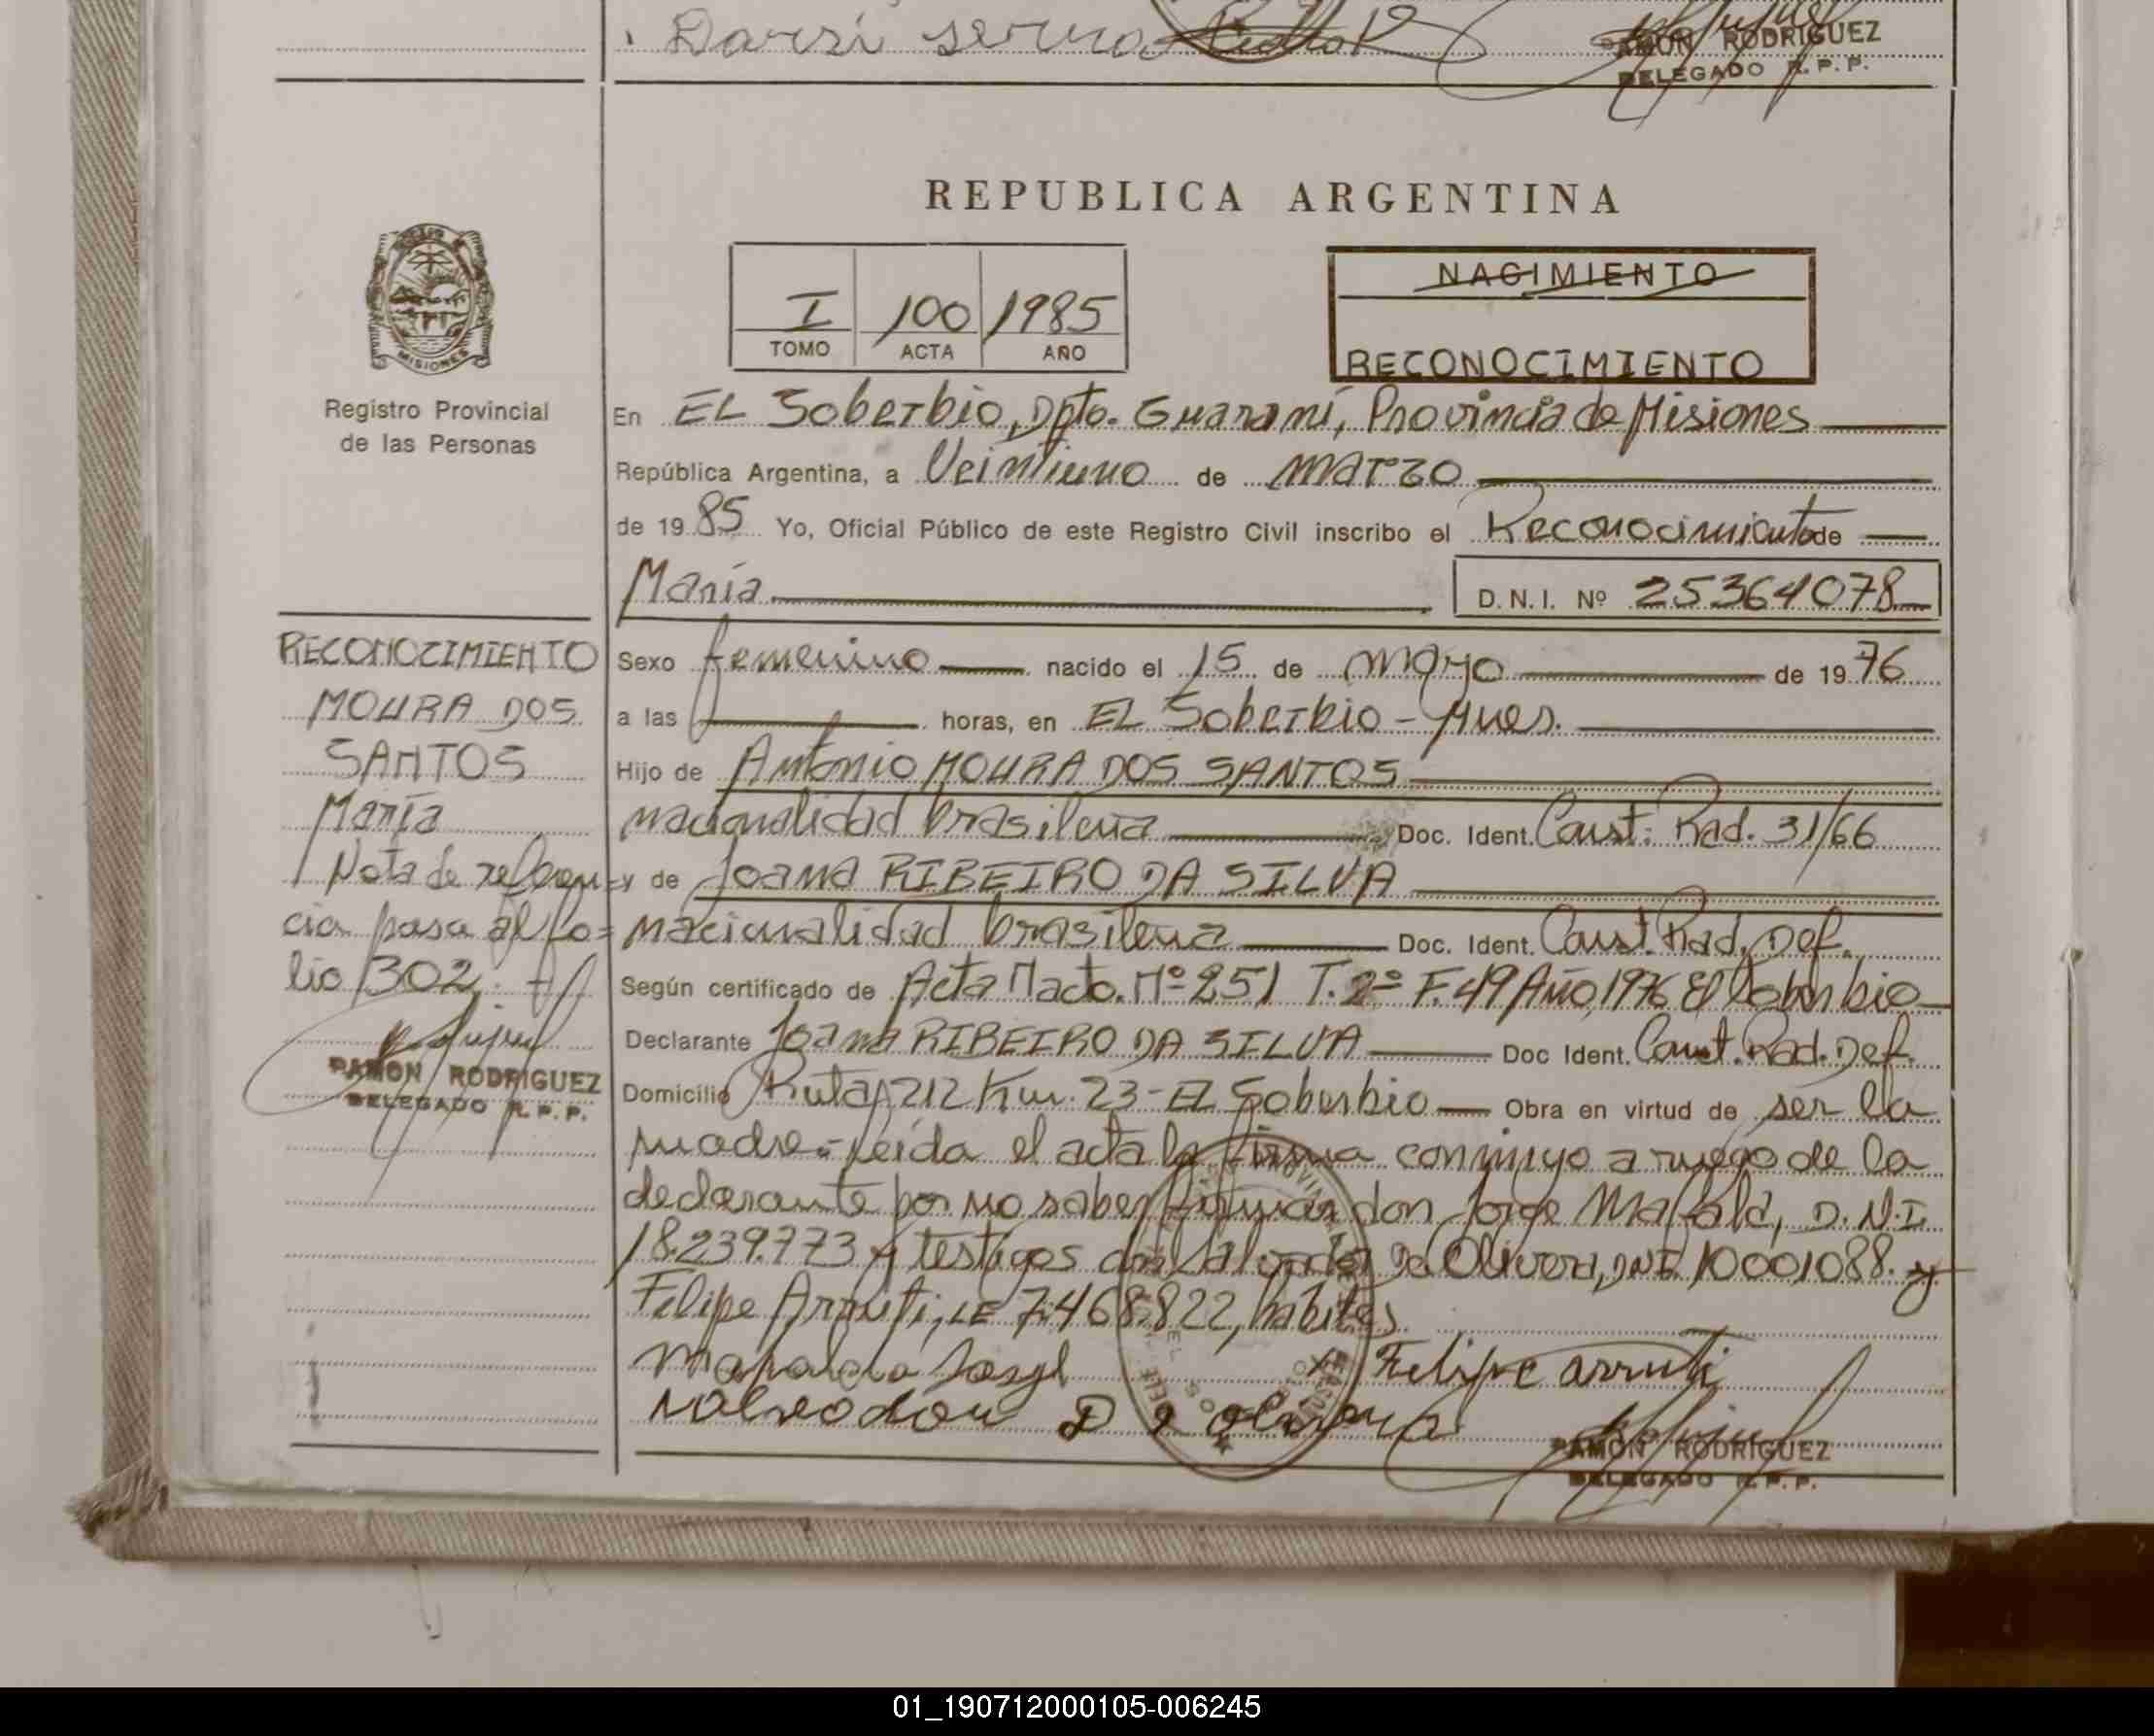 Darzi
RAMON RODRIGUEZ
DELEGADO R. P. P.
REPUBLICA ARGENTINA
I 100 1985
TOMO ACTA AÑO
NACIMIENTO
RECONOCIMIENTO
MISIONES
Registro Provincial
de las Personas
En EL Soberbio, Dpto. Guaraní, Provincia de Misiones
República Argentina, a Veintiuno de marzo
de 1985 Yo, Oficial Público de este Registro Civil inscribo el Reconocimiento de
María D.N.I. Nº 25364078
RECONOCIMIENTO
MOURA DOS
SANTOS
María
Nota de referen=
cia pasa al fo=
lio 302.
RAMON RODRIGUEZ
DELEGADO R. P. P.
Sexo femenino nacido el 15 de mayo de 1976
a las horas, en EL Soberbio - Mnes.
Hijo de Antonio MOURA DOS SANTOS
nacionalidad brasilena Doc. Ident. Const. Rad. 31/66
y de Joana RIBEIRO DA SILVA
nacionalidad brasilena Doc. Ident. Const. Rad. Def.
Según certificado de Acta Nacto. Nº 251 T. 2º F. 49 Año 1976 El Soberbio
Declarante Joana RIBEIRO DA SILVA Doc Ident. Const. Rad. Def.
Domicilio Ruta 212 Km. 23 - EL Soberbio Obra en virtud de ser la
madre.- Leída el acta la firma conmigo a ruego de la
declarante por no saber firmar don Jorge Mafalda, D.N.I.
18.239.773 y testigos don Salvador Da Olivera, DNI. 10001088. y
Felipe Arruti, LE 7.468.822, habiles
Mafalda Jorge Felipe arruti
RAMON RODRIGUEZ
DELEGADO R. P. P.
01_190712000105-006245